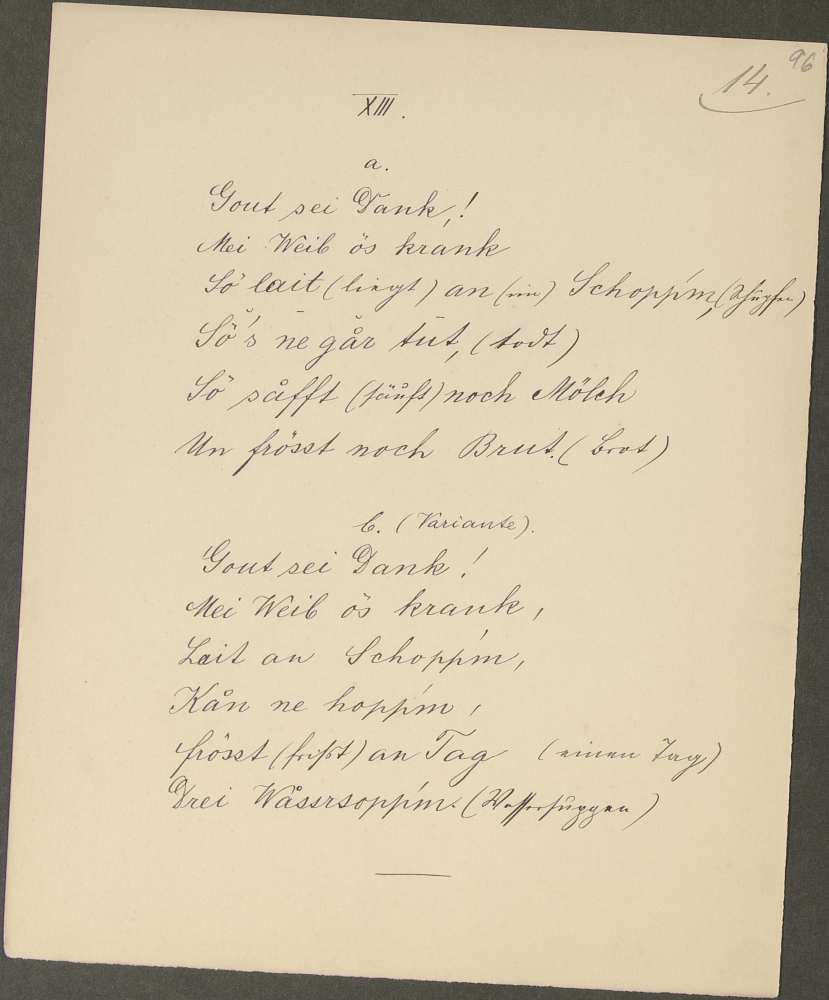 96
14.
XIII.
a.
Gout sei Dank!
Mei Weib ös krank
Sö lait (liegt) an (im) Schopp'm, (Schupfen)
Sö's ne går tut, (todt)
Sö såfft (säuft) noch Mölch
Un frösst noch Brut. (Brot)
b. (Variante).
Gout sei Dank!
Mei Weib ös krank,
Lait an Schopp'm,
Kån ne hopp'm,
frösst (frißt) an Tag (einen Tag)
Drei Wåssrsopp'm. (Wassersuppen)